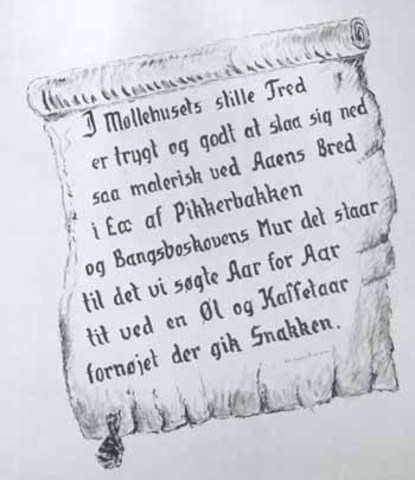 I Møllehusets stille Fred
er trygt og godt at slaa sig ned
saa malerisk ved Aaens Bred
i Læ af Pikkerbakken
og Bangsboskovens Mur det staar
til det vi søgte Aar for Aar
tit ved en Øl og Kaffetaar
fornøjet der gik Snakken.